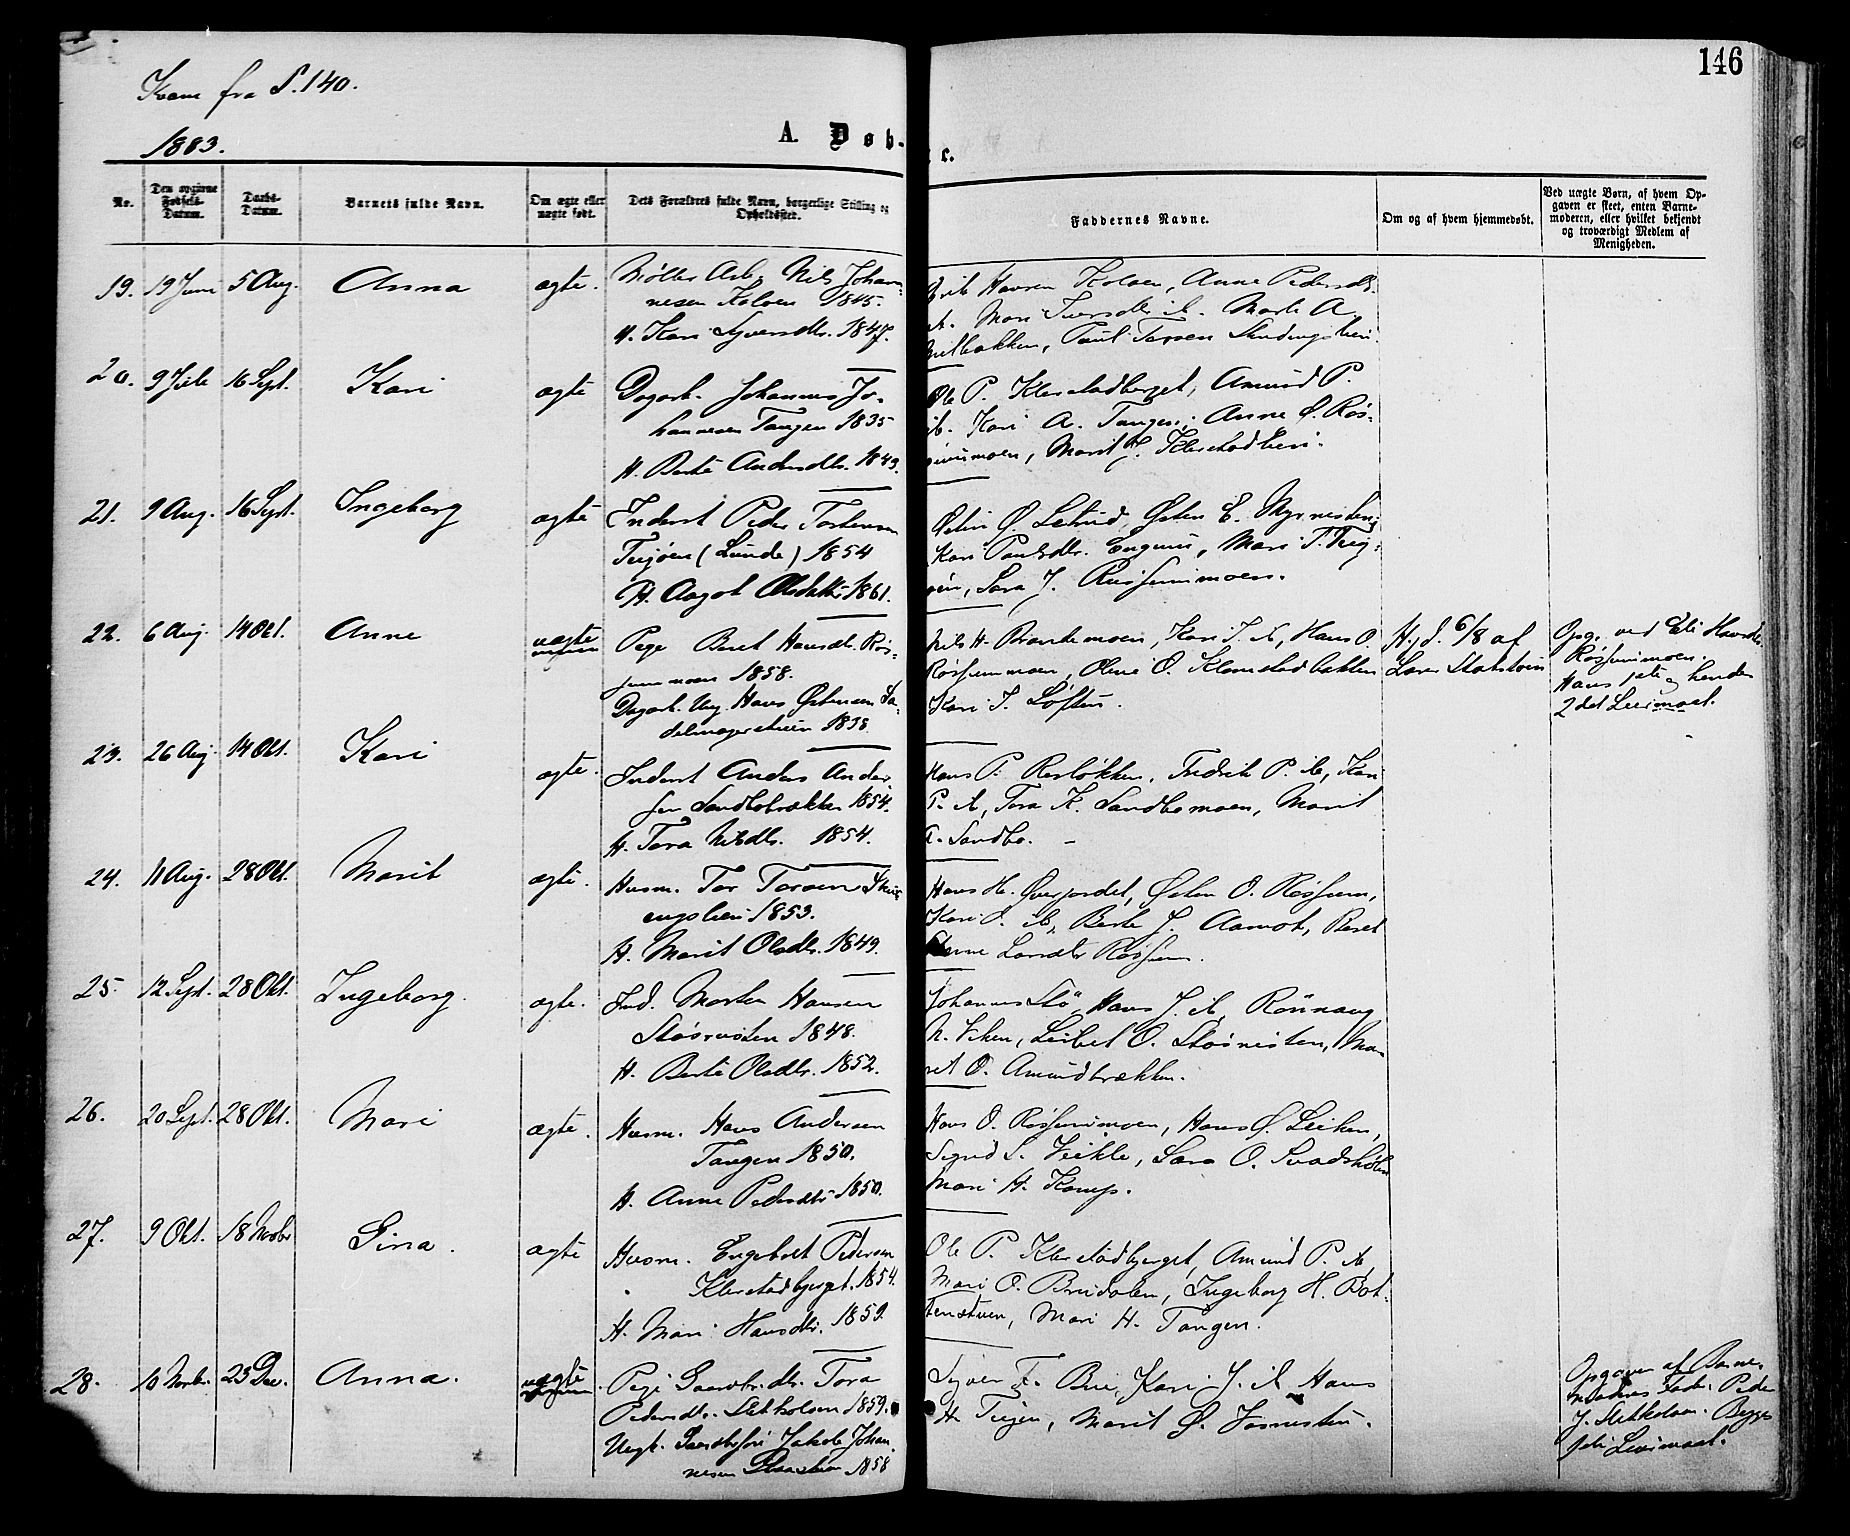 146
Kvam fra S. 140.
1883.
A. Døb-
e.
No.
Den opgivne Fødsels-Datum.
Daabs-Datum.
Barnets fulde Navn.
Om ægte eller uægte født.
Dets Forældres fulde Navn, borgerlige Stilling og Opholdssted.
Faddernes Navne.
Om og af hvem hjemmedøbt.
Ved uægte Børn, af hvem Opgaven er skeet, enten Barnemoderen, eller hvilket bekjendt og troværdigt Medlem af Menigheden.
19. 19 Juni 5 Aug. Anna ægte. Møller Arb. Nils Johan-
nesen Kolven 1845.
H. Kari Syversdtr. 1847.
Havren Kolven, Anne Pedersdtr.
Mari Iversdtr. Marte A.
Paul Torsen
20. 9 Juli 16 Sept. Kari ægte Dagarb. Johannes Jo-
hannesen Tangen 1835
H. Berte Andersdtr. 1849.
Ole P. Klevstadberget, Amund P.
ib. Kari A. Tangen, Anne O. Røs-
simmoen, Marit J. Klevstadlien.
21. 9 Aug. 16 Sept. Ingeborg ægte Inderst Peder Torstensen
Teigen (Lunde) 1854
H. Aagot Olsdatter 1861.
Ø. Østen E. Myrnesten,
Kari Paulsdtr. Mari T. Teig-
Sara J. Røssummoen.
22. 6 Aug. 14 Okt. Anne uægte Pige Beret Hansdt. Røs-
summoen 1858.
Dagarb. Ung. Hans Østensen Sa-
delmagerstuen 1838.
Nils H. Brandemoen, Kari I. ib, Hans O.
Røssummoen, Olene O. Klomstadbakken
Kari I. Løften.
Hj. d. 6/8 af
Lars
Opg. ved Eli Havrdtr.
Røssummoen.
Hans 1ste og hendes
2det Leiermaal.
23. 26 Aug. 14 Okt. Kari ægte. Inderst Anders Ander-
sen Sandbobrækken 1854.
H. Tora Nilsdtr. 1854.
Hans P. Resløkken, Fredrik P. ib, Kari
P. ib, Tora K. Sandbomoen, Marit
A. Sandbo.
24. 11 Aug. 28 Okt. Marit ægte. Husm. Tor Torsen
1853.
H. Marit Olsdtr. 1849.
Hans H. Øverjordet, Østen O. Røssum,
Kari O. ib, Berte J. Aamot, Beret
Røssum.
25. 12 Sept. 28 Okt. Ingeborg. ægte. Ind. Morten Hansen
Støsnesten 1848.
H. Berte Olsdtr. 1852.
Johannes Stø, Hans J. ib, Rönnaug
N. Viken, Leibet O. Støsnesten, Ma-
rit O. Amundbrækken.
26. 20 Sept. 28 Okt. Mari ægte. Husm. Hans Andersen
Tangen 1850.
H. Anne Pedersdtr 1850.
Hans O. Røssummoen, Hans O.
Sigrid S. Veikle, Sara O.
Mari H. Kamp.
27. 9 Okt. 18 Novbr Sina. ægte Husm. Engebret Pedersen
Klevstadbjerget. 1854.
H. Mari Hansdtr. 1859.
Ole P. Klevstadbjerget, Amund P. ib
Mari O. Brudalen, Ingeborg H. Bot-
tenstuen, Mari H. Tangen.
28. 10 Novbr. 23 Dec. Anna. uægte Pige Gaardbr.dtr. Tora
Pedersdtr. Sletholen 1859.
Ungk. Gaardbrsøn Jakob Johan-
nesen 1858
Syver F. Bue, Kari J. ib Hans
H. Teigen, Marit O.
Opgaven af Barne-
moderens Fader Peder
J. Sletholen. Begges
1ste Leiermaal.